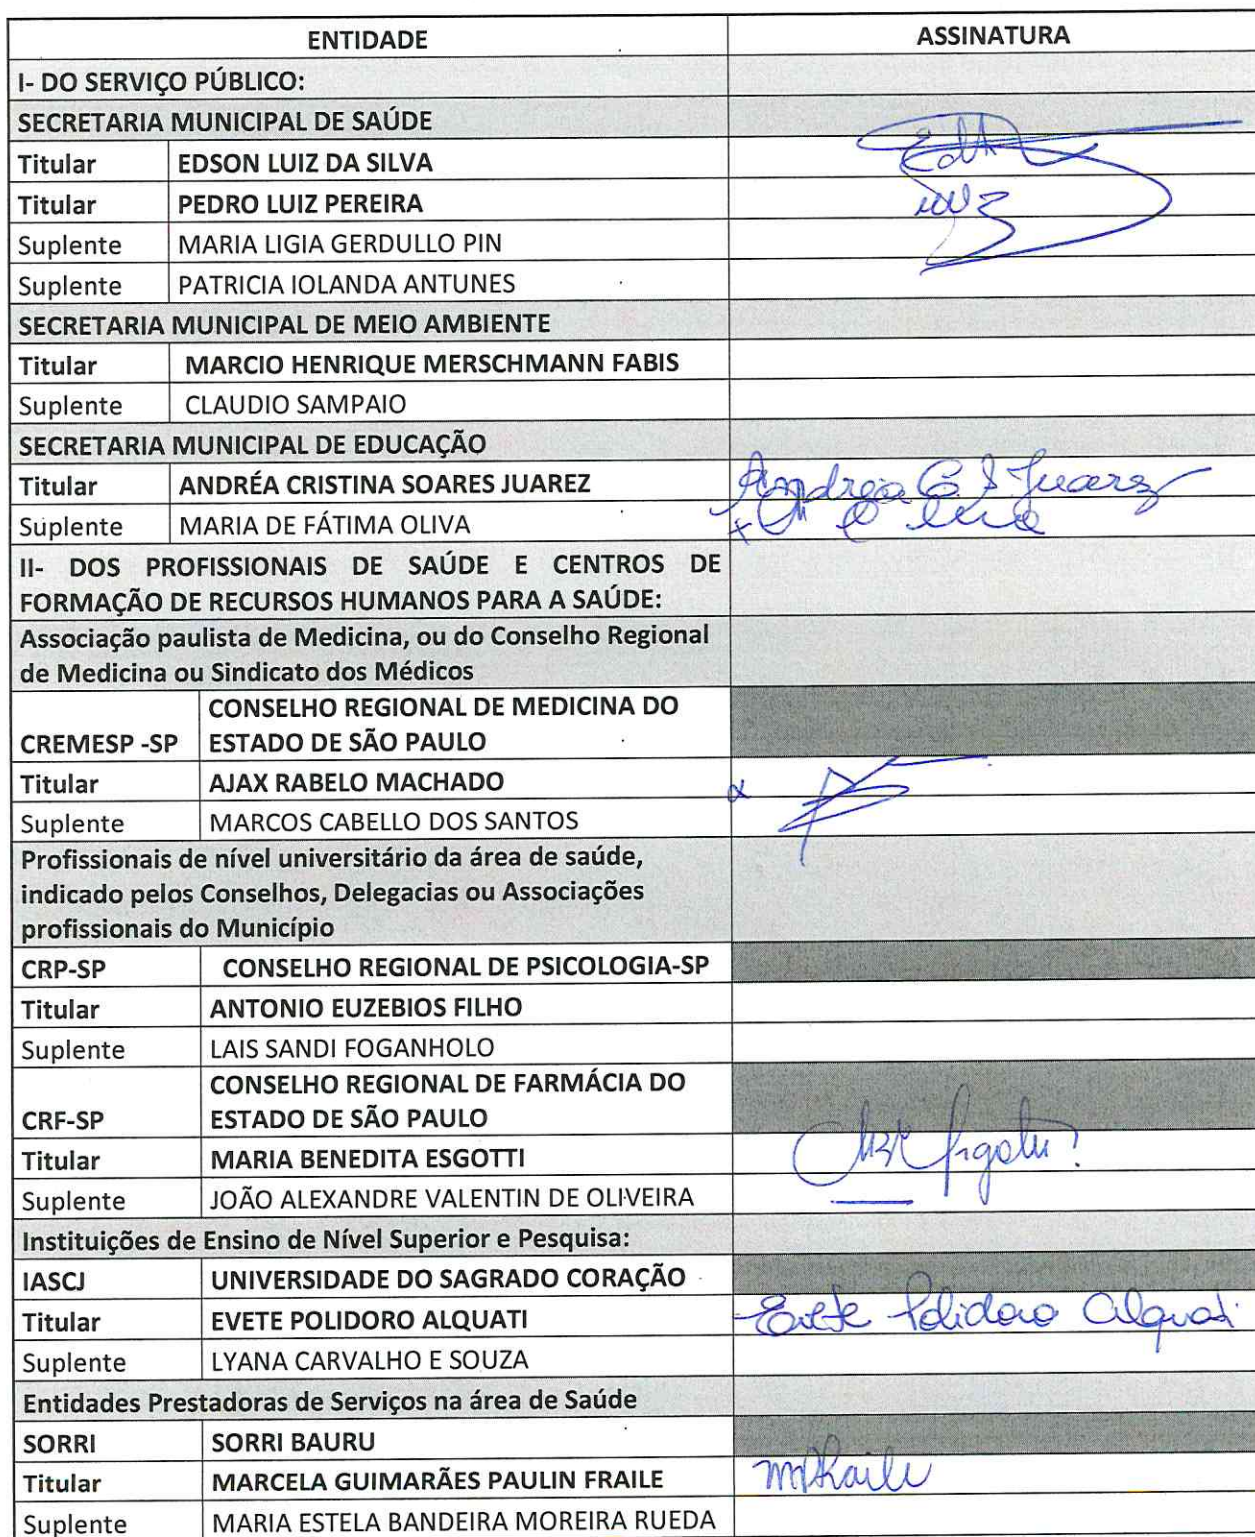 ENTIDADE ASSINATURA
I- DO SERVIÇO PÚBLICO:
SECRETARIA MUNICIPAL DE SAÚDE
Titular EDSON LUIZ DA SILVA
Titular PEDRO LUIZ PEREIRA
Suplente MARIA LIGIA GERDULLO PIN
Suplente PATRICIA IOLANDA ANTUNES
SECRETARIA MUNICIPAL DE MEIO AMBIENTE
Titular MARCIO HENRIQUE MERSCHMANN FABIS
Suplente CLAUDIO SAMPAIO
SECRETARIA MUNICIPAL DE EDUCAÇÃO
Titular ANDRÉA CRISTINA SOARES JUAREZ Andréa C S Juarez
Suplente MARIA DE FÁTIMA OLIVA
II- DOS PROFISSIONAIS DE SAÚDE E CENTROS DE
FORMAÇÃO DE RECURSOS HUMANOS PARA A SAÚDE:
Associação paulista de Medicina, ou do Conselho Regional
de Medicina ou Sindicato dos Médicos
CONSELHO REGIONAL DE MEDICINA DO
CREMESP -SP ESTADO DE SÃO PAULO
Titular AJAX RABELO MACHADO
Suplente MARCOS CABELLO DOS SANTOS
Profissionais de nível universitário da área de saúde,
indicado pelos Conselhos, Delegacias ou Associações
profissionais do Município
CRP-SP CONSELHO REGIONAL DE PSICOLOGIA-SP
Titular ANTONIO EUZEBIOS FILHO
Suplente LAIS SANDI FOGANHOLO
CONSELHO REGIONAL DE FARMÁCIA DO
CRF-SP ESTADO DE SÃO PAULO
Titular MARIA BENEDITA ESGOTTI
Suplente JOÃO ALEXANDRE VALENTIN DE OLIVEIRA
Instituições de Ensino de Nível Superior e Pesquisa:
IASCJ UNIVERSIDADE DO SAGRADO CORAÇÃO
Titular EVETE POLIDORO ALQUATI Evete Polidoro Alquati
Suplente LYANA CARVALHO E SOUZA
Entidades Prestadoras de Serviços na área de Saúde
SORRI SORRI BAURU
Titular MARCELA GUIMARÃES PAULIN FRAILE
Suplente MARIA ESTELA BANDEIRA MOREIRA RUEDA